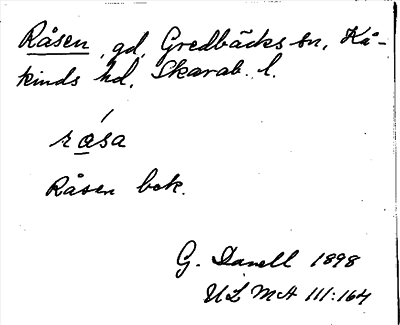 Råsen, gd, Gredbäcks sn, Kå-
kinds hd, Skarab. l.
råsa
Råsen bok.
G. Danell 1898
ULMA 111:164